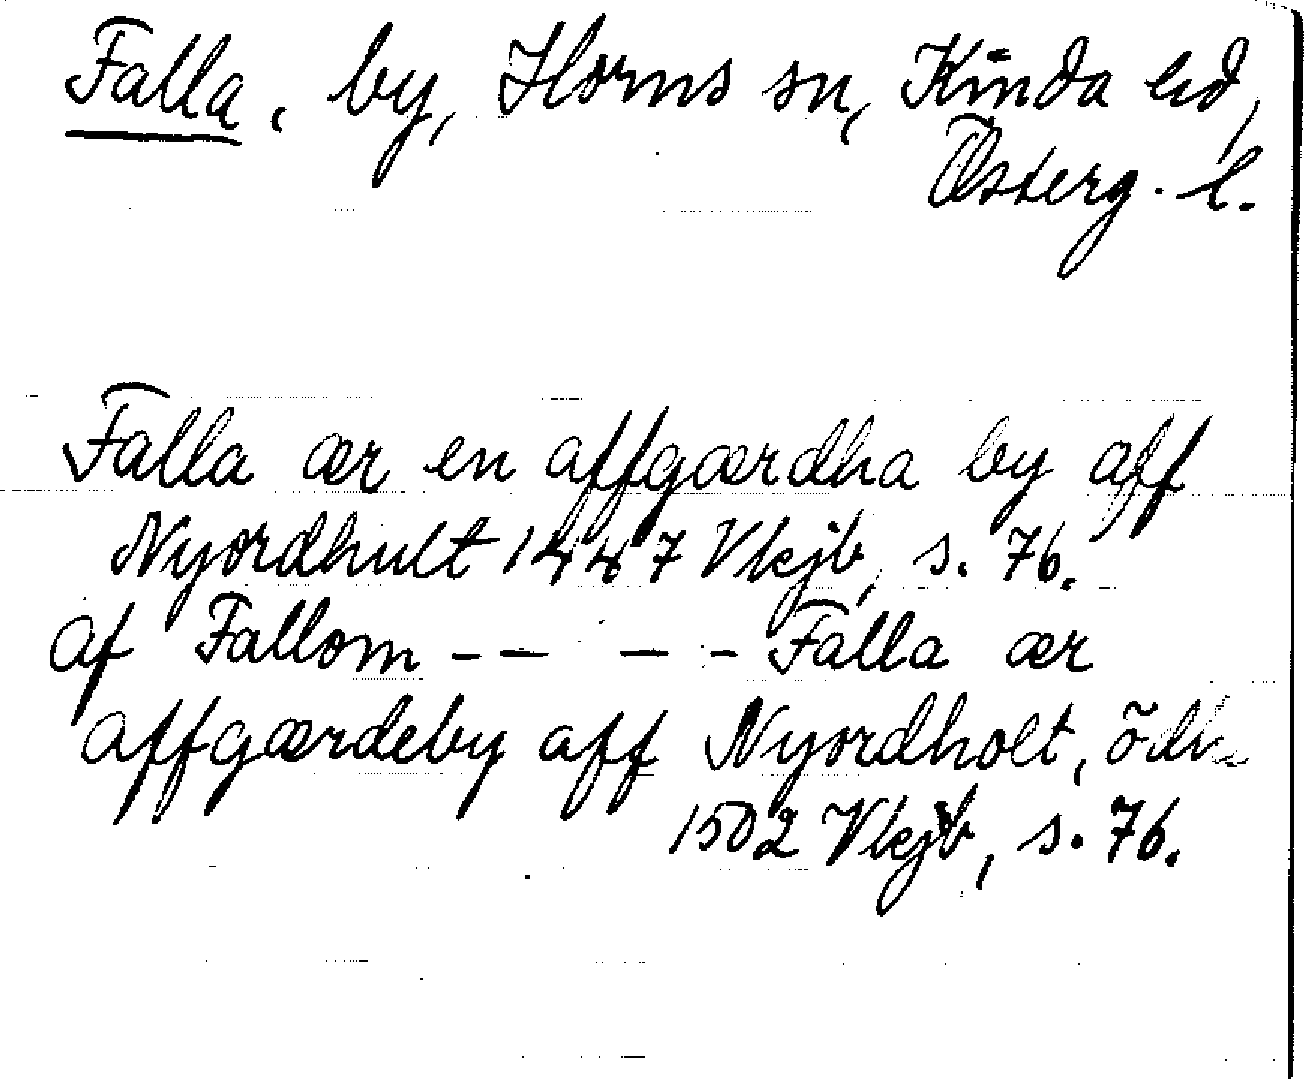 Falla, by, Horns sn, Kinda hd,
Österg. l.
Falla ær en affgærdha by aff
Nyordhult 1447 Vkjb, s. 76.
af Fallom -- -- Falla ær
affgærdeby aff Nyordholt,
1502 Vkjb, s. 76.